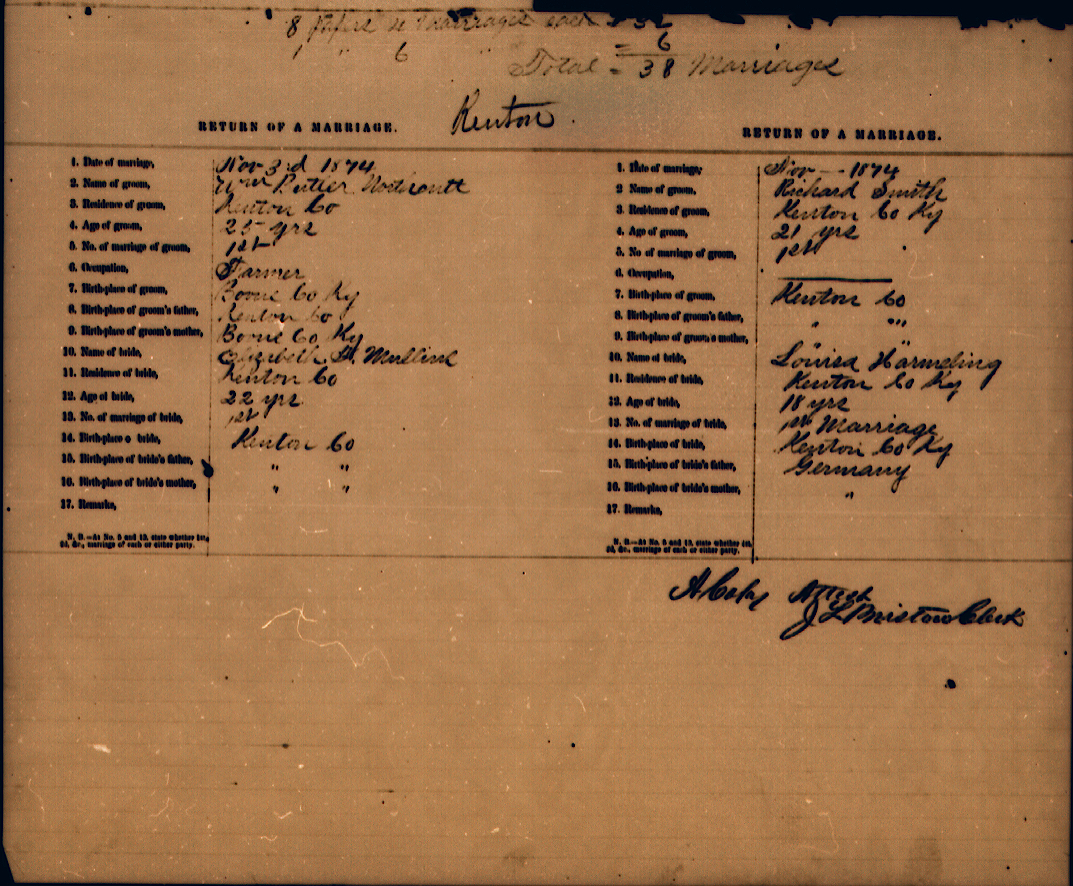 8 papers 4 Marriages each = 32
1 " 6 " = 6
Total = 38 Marriages
Kenton
RETURN OF A MARRIAGE.
1. Date of marriage, Nov 3rd 1874
2. Name of groom, Wm Butler Northcutt
3. Residence of groom, Kenton Co
4. Age of groom, 25 yrs
5. No. of marriage of groom, 1st
6. Occupation, Farmer
7. Birth-place of groom, Boone Co Ky
8. Birth-place of groom's father, Kenton Co
9. Birth-place of groom's mother, Boone Co Ky
10. Name of bride, Elizabeth Mullins
11. Residence of bride, Kenton Co
12. Age of bride, 22 yrs
13. No. of marriage of bride, 1st
14. Birth-place o bride, Kenton Co
15. Birth-place of bride's father, " "
16. Birth-place of bride's mother, " "
17. Remarks,
N. B.—At No. 5 and 13, state whether 1st,
2d, &c., marriage of each or either party.
RETURN OF A MARRIAGE.
1. Date of marriage, Nov — 1874
2 Name of groom, Richard Smith
3. Residence of groom, Kenton Co Ky
4. Age of groom, 21 yrs
5. No of marriage of groom, 1st
6. Occupation, —
7. Birth-place of groom, Kenton Co
8. Birth-place of groom's father, " "
9. Birth-place of groom's mother,
10. Name of bride, Louisa Harmeling
11. Residence of bride, Kenton Co Ky
12. Age of bride, 18 yrs
13. No. of marriage of bride, 1st Marriage
14. Birth-place of bride, Kenton Co Ky
15. Birth-place of bride's father, Germany
16. Birth-place of bride's mother, "
17. Remarks,
N. B.—At No. 5 and 13, state whether 1st,
2d, &c., marriage of each or either party.
A Copy Attest
J L Bristow Clerk